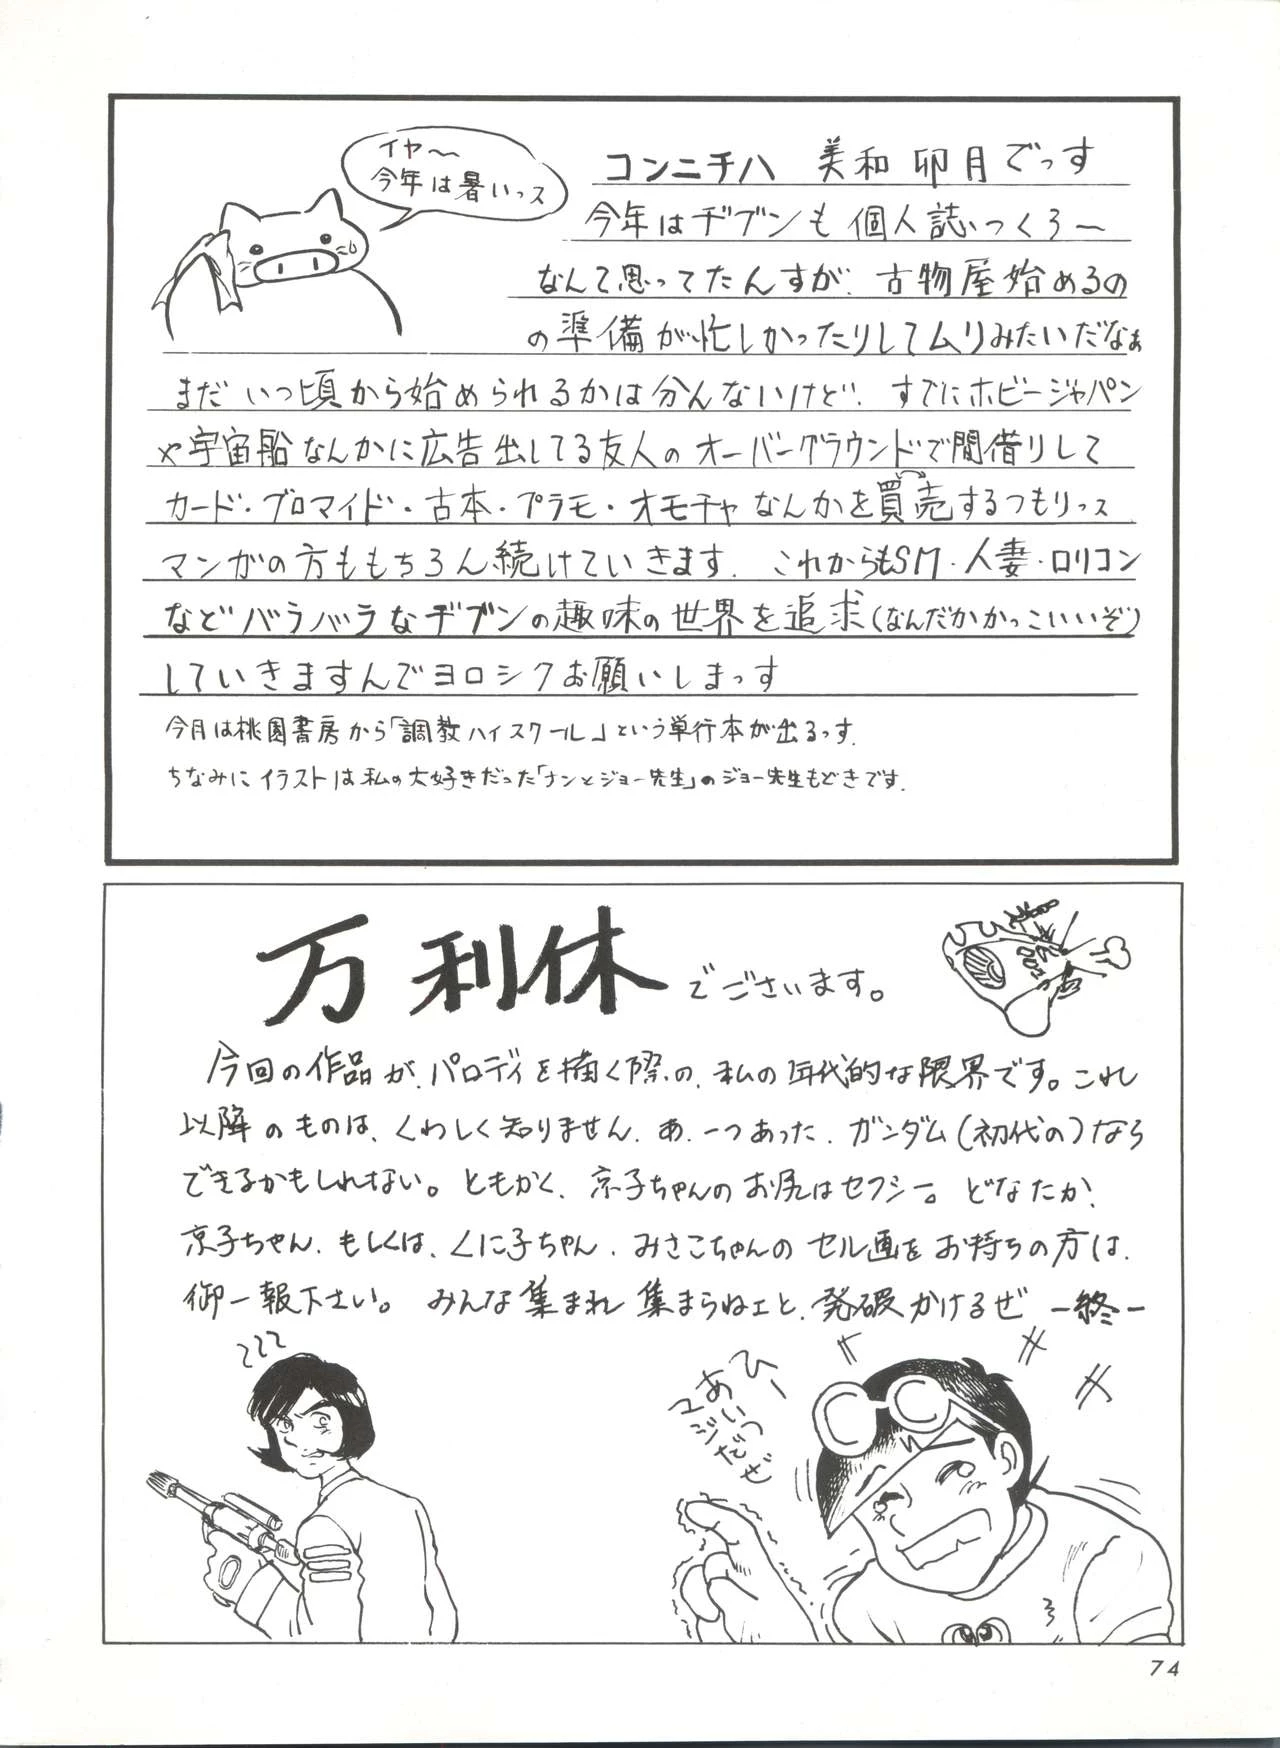 イヤ〜
今年は暑いっス
コンニチハ 美和卯月でっす
今年はヂブンも個人誌つくろ〜
なんて思ってたんすが、古物屋始めるの
の準備が忙しかったりしてムリみたいだなぁ
まだいつ頃から始められるかは分んないけど、すでにホビージャパン
や宇宙船なんかに広告出してる友人のオーバーグラウンドで間借りして
カード・ブロマイド・古本・プラモ・オモチャなんかを買売するつもりっス
マンガの方ももちろん続けていきます。これからもSM・人妻・ロリコン
などバラバラなヂブンの趣味の世界を追求(なんだかかっこいいぞ)
していきますんでヨロシクお願いしまっす
今月は桃園書房から「調教ハイスクール」という単行本が出るっす。
ちなみにイラストは私の大好きだった「ナンとジョー先生」のジョー先生もどきです。
万利休でございます。
今回の作品が、パロディを描く際の、私の年代的な限界です。これ
以降のものは、くわしく知りません。あ、一つあった、ガンダム(初代の)なら
できるかもしれない。ともかく、京子ちゃんのお尻はセクシー。どなたか、
京子ちゃん、もしくは、くに子ちゃん、みさこちゃんのセル画をお持ちの方は、
御一報下さい。みんな集まれ集まらねェと、発破かけるぜ ー終ー
ひー
あいつ
マジだぜ
74